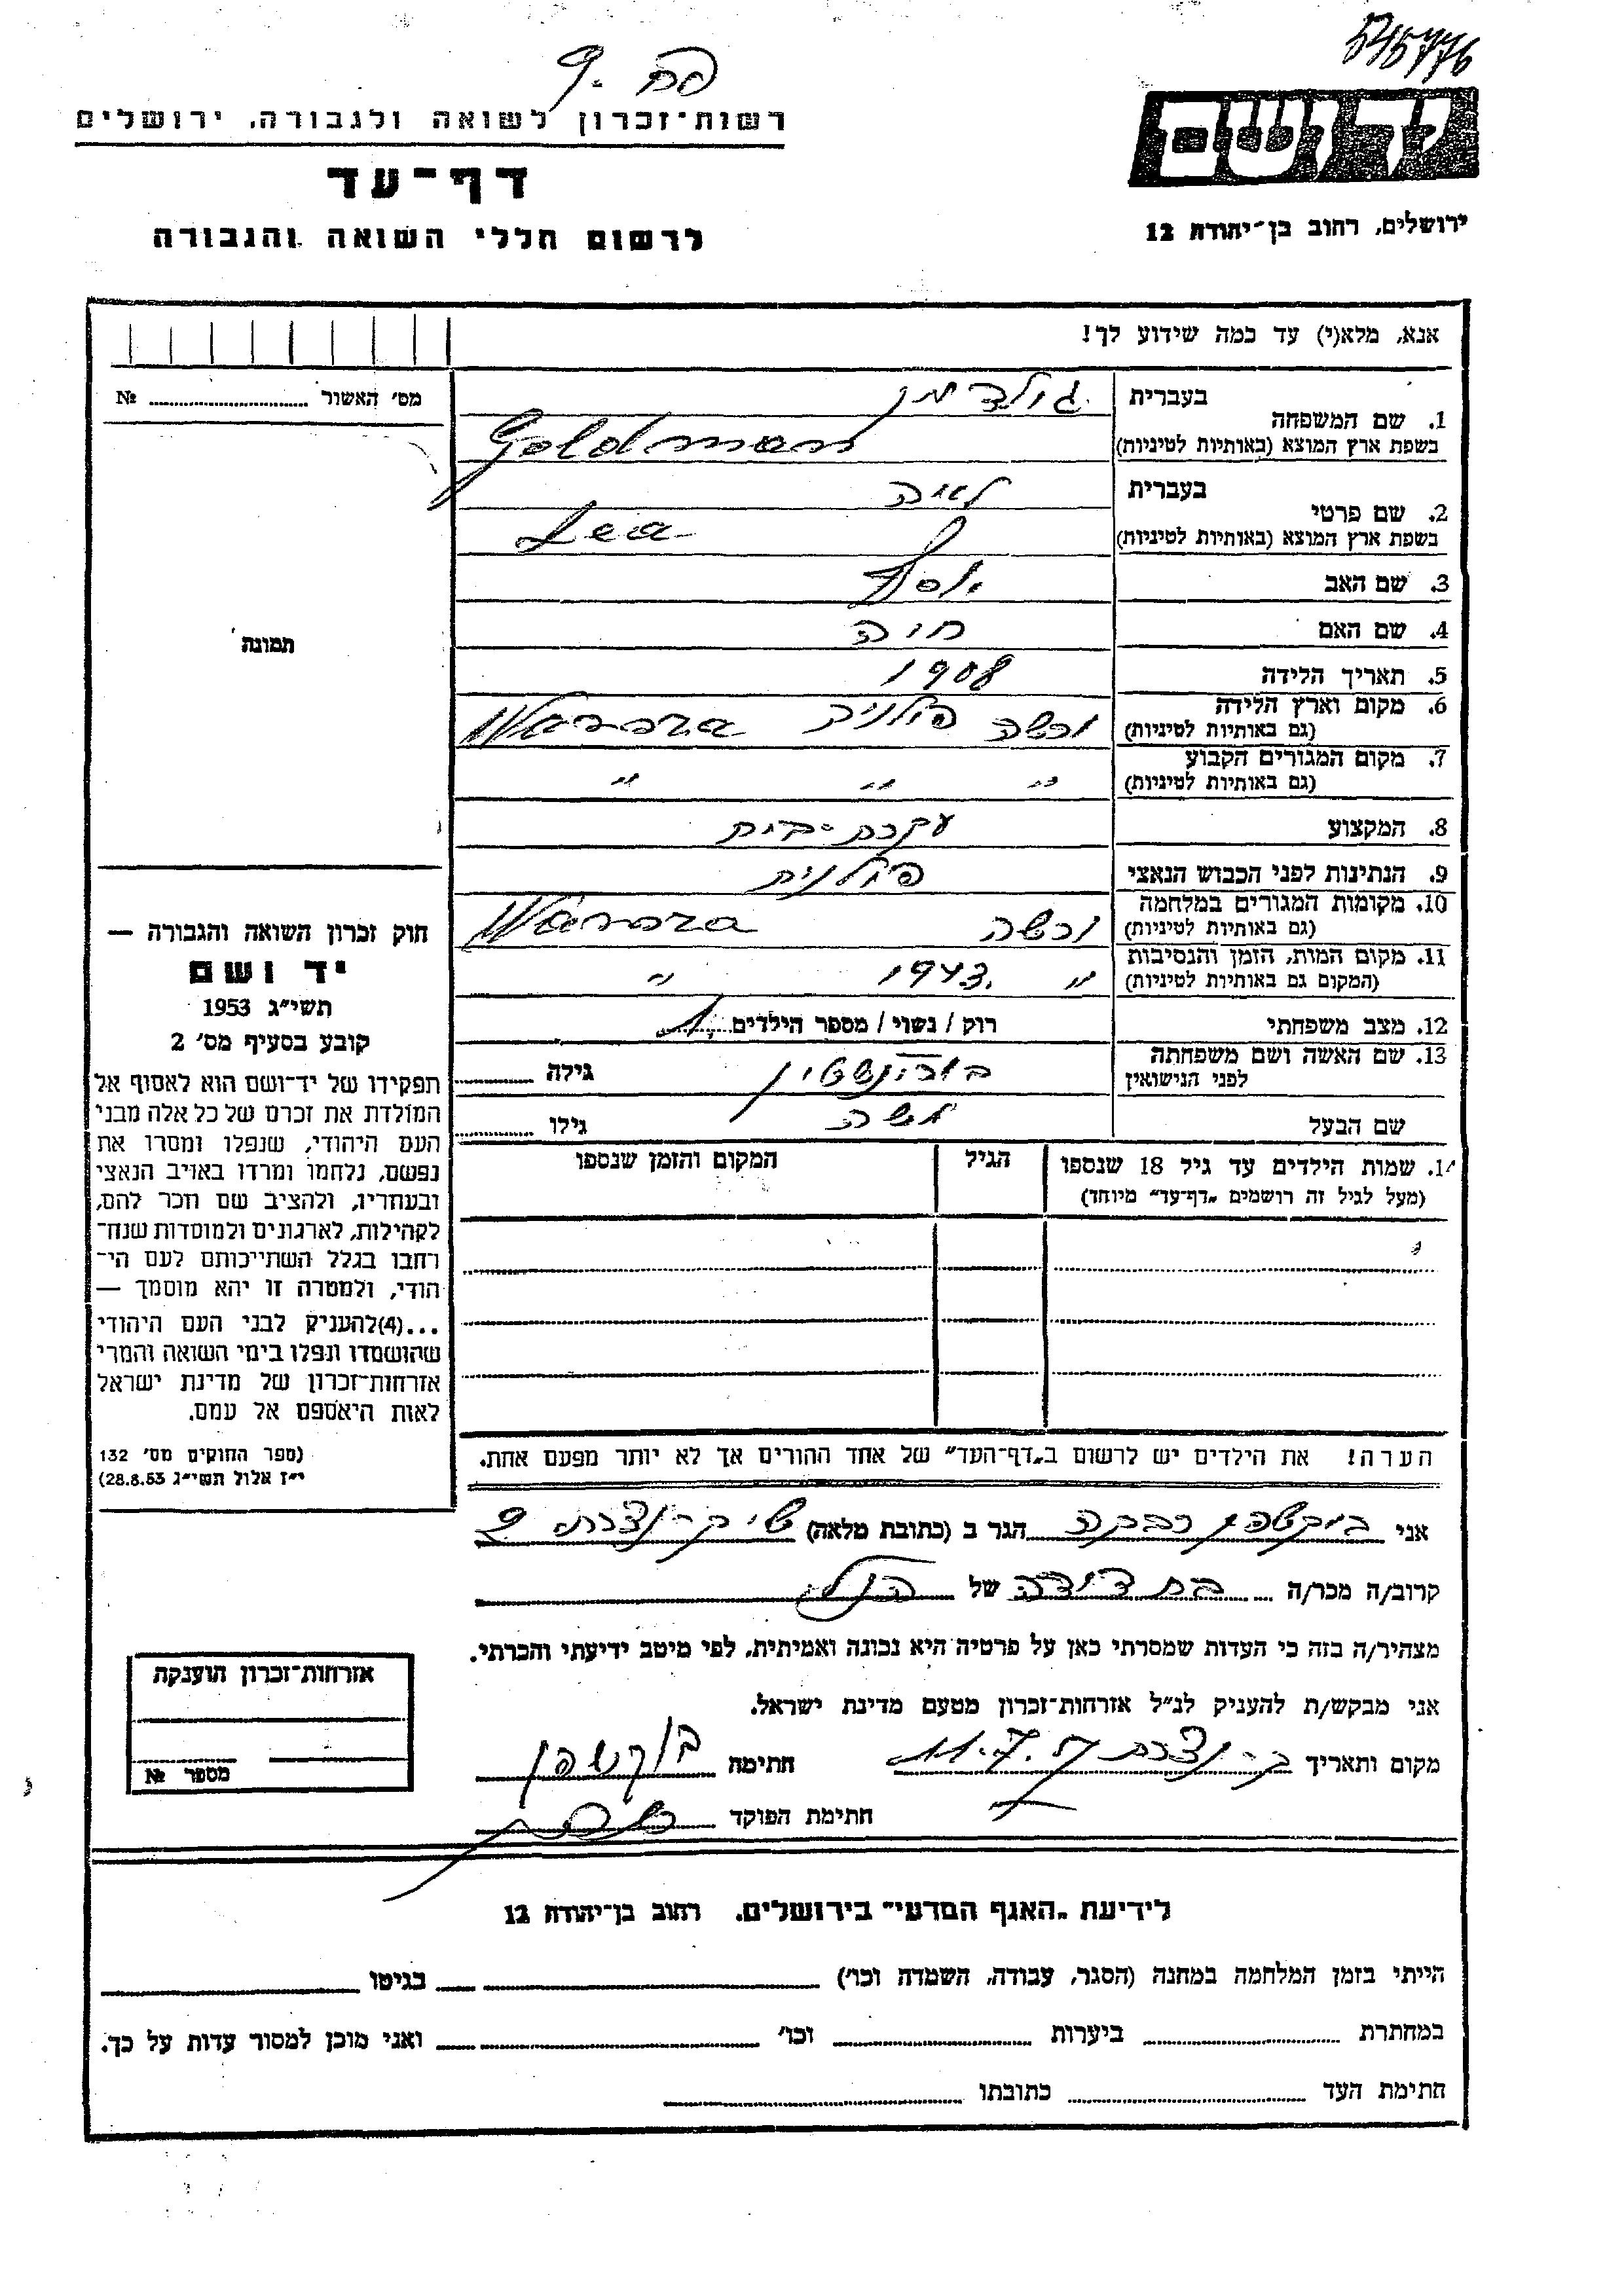 545776
פח. 9
יד ושם
רשות־זכרון לשואה ולגבורה, ירושלים
דף־עד
לרשום חללי השואה והגבורה
ירושלים, רחוב בן־יהודה 12
אנא, מלא(י) עד כמה שידוע לך!
מס׳ האשור № ........
תמונה
1. שם המשפחה בעברית גולדמן
בשפת ארץ המוצא (באותיות לטיניות) Goldman
2. שם פרטי בעברית לאה
בשפת ארץ המוצא (באותיות לטיניות) Lea
3. שם האב יוסף
4. שם האם חוה
5. תאריך הלידה 1908
6. מקום וארץ הלידה (גם באותיות לטיניות) ורשה פולניה Warsza
7. מקום המגורים הקבוע (גם באותיות לטיניות) " " "
8. המקצוע עקרת-בית
9. הנתינות לפני הכבוש הנאצי פולנית
10. מקומות המגורים במלחמה (גם באותיות לטיניות) ורשה Warsza
11. מקום המות, הזמן והנסיבות (המקום גם באותיות לטיניות) " 1943. "
12. מצב משפחתי רוק / נשוי / מספר הילדים 1
13. שם האשה ושם משפחתה לפני הנישואין בורנשטיין גילה ........
שם הבעל משה גילו ........
14. שמות הילדים עד גיל 18 שנספו (מעל לגיל זה רושמים „דף־עד״ מיוחד) הגיל המקום והזמן שנספו
חוק זכרון השואה והגבורה —
יד ושם
תשי״ג 1953
קובע בסעיף מס׳ 2
תפקידו של יד־ושם הוא לאסוף אל
המולדת את זכרם של כל אלה מבני
העם היהודי, שנפלו ומסרו את
נפשם, נלחמו ומרדו באויב הנאצי
ובעוזריו, ולהציב שם וזכר להם,
לקהילות, לארגונים ולמוסדות שנח־
רחבו בגלל השתייכותם לעם הי־
הודי, ולמטרה זו יהא מוסמך —
...(4)להעניק לבני העם היהודי
שהושמדו ונפלו בימי השואה והמרי
אזרחות־זכרון של מדינת ישראל
לאות היאספם אל עמם.
(ספר החוקים מס׳ 132
י״ז אלול תשי״ג 28.8.53)
הערה! את הילדים יש לרשום ב„דף־העד״ של אחד ההורים אך לא יותר מפעם אחת.
אני בוקשפן רבקה הגר ב (כתובת מלאה) שי ק-נצרת 9
קרוב/ה מכר/ה בת דודה של הנ״ל
מצהיר/ה בזה כי העדות שמסרתי כאן על פרטיה היא נכונה ואמיתית, לפי מיטב ידיעתי והכרתי.
אני מבקש/ת להעניק לנ״ל אזרחות־זכרון מטעם מדינת ישראל.
מקום ותאריך ק-נצרת 11.7.57 חתימה בוקשפן
חתימת הפוקד
אזרחות־זכרון הוענקת
מספר №
לידיעת „האגף המדעי״ בירושלים, רחוב בן־יהודה 12
הייתי בזמן המלחמה במחנה (הסגר, עבודה, השמדה וכו׳) ........ בגיטו ........
במחתרת ........ ביערות ........ וכו׳ ........ ואני מוכן למסור עדות על כך.
חתימת העד ........ כתובתו ........